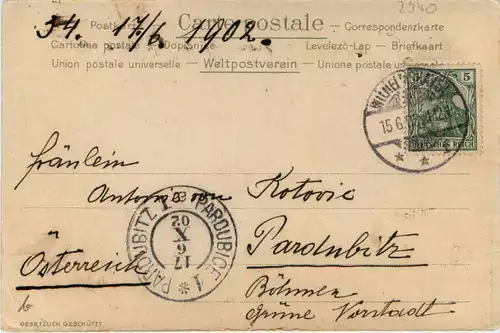 2940
34. 17/6 1902.
Postkarte Carte postale - Correspondenzkarte
Cartolina postale Dopisnice Levelező-Lap - Briefkaart
Union postale universelle - Weltpostverein - Unione postale
5 5
15.6.
DEUTSCHES REICH
Fräulein
Antonie von Kotovic
PARDUBITZ 1 * PARDUBICE 1
17 6 X 02
Pardubitz
Österreich
Böhmen
Grüne Vorstadt.
b
GESETZLICH GESCHÜTZT